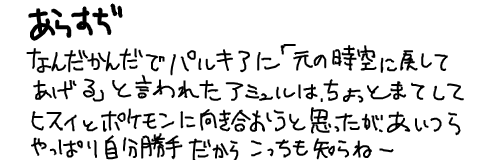 あらすぢ
なんだかんだでパルキアに「元の時空に戻して
あげる」と言われたアミュルは、ちょっとまてして
ヒスイとポケモンに向き合おうと思ったが、あいつら
やっぱり自分勝手だからこっちも知らねー